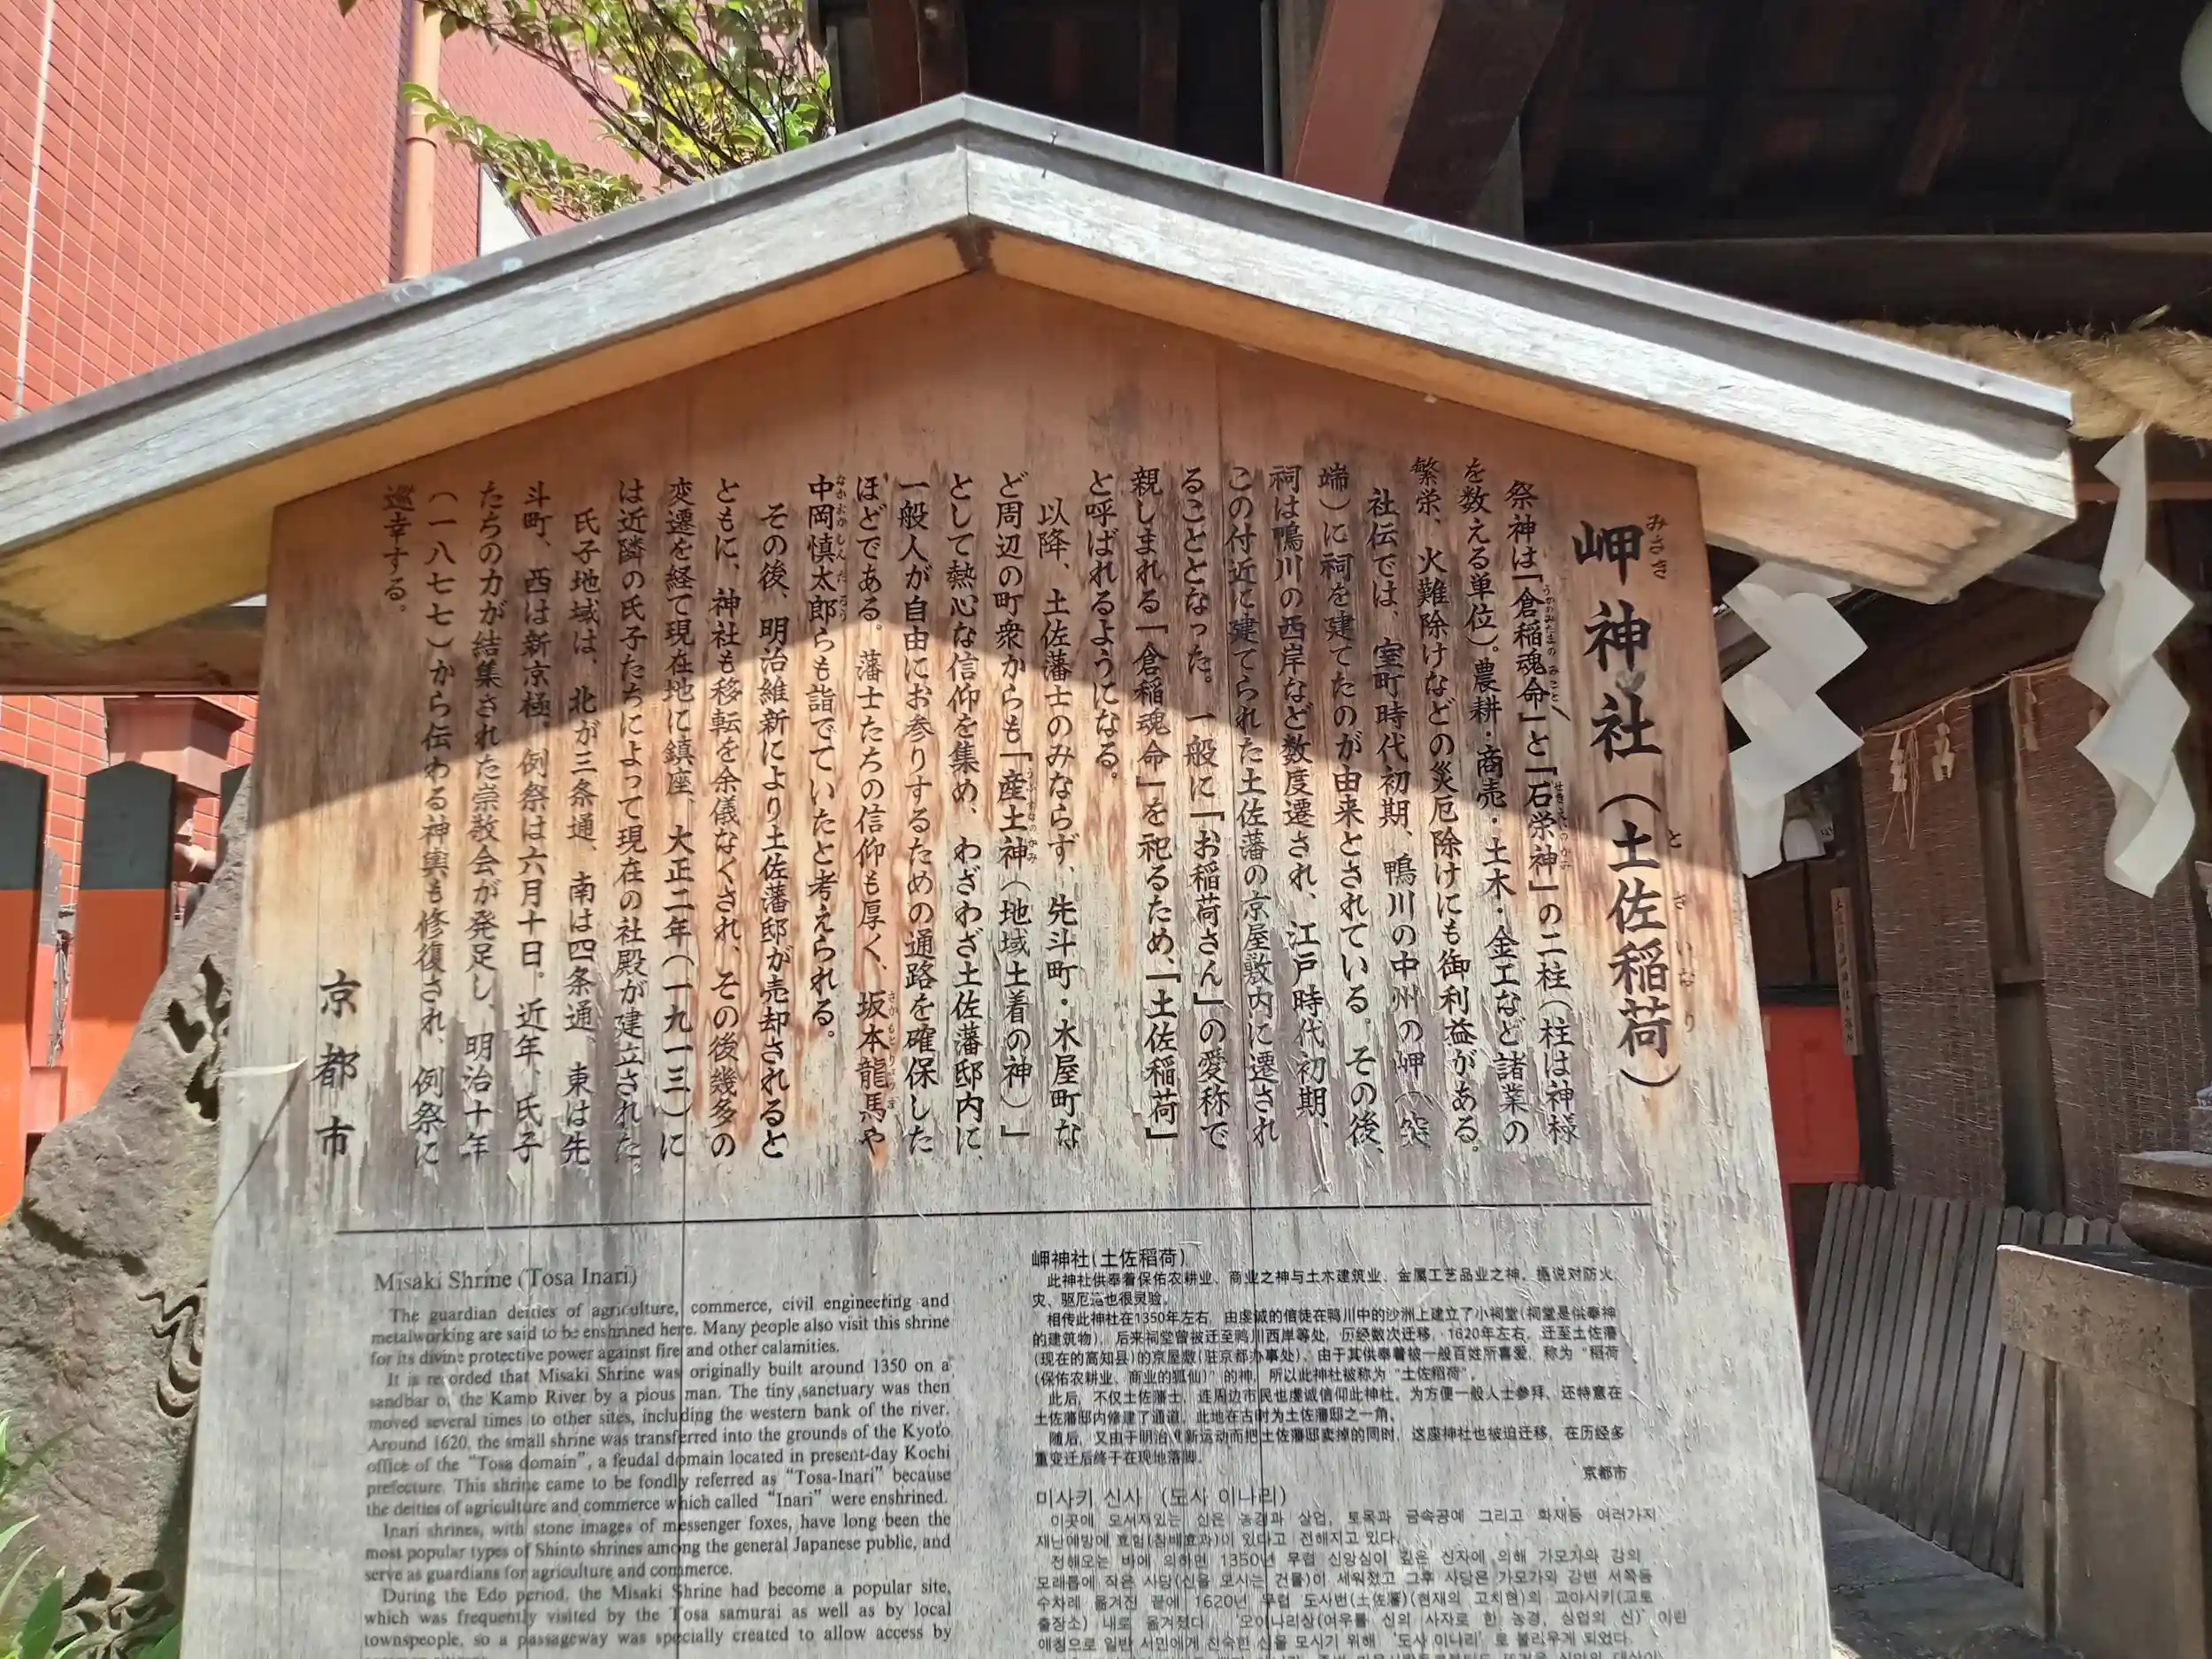 岬神社（土佐稲荷）
祭神は「倉稲魂命」と「石栄神」の二柱（柱は神様
を数える単位）。農耕・商売・土木・金工など諸業の
繁栄、火難除けなどの災厄除けにも御利益がある。
社伝では、室町時代初期、鴨川の中州の岬（突
端）に祠を建てたのが由来とされている。その後、
祠は鴨川の西岸など数度遷され、江戸時代初期、
この付近に建てられた土佐藩の京屋敷内に遷され
ることとなった。一般に「お稲荷さん」の愛称で
親しまれる「倉稲魂命」を祀るため、「土佐稲荷」
と呼ばれるようになる。
以降、土佐藩士のみならず、先斗町・木屋町な
ど周辺の町衆からも「産土神（地域土着の神）」
として熱心な信仰を集め、わざわざ土佐藩邸内に、
一般人が自由にお参りするための通路を確保した
ほどである。藩士たちの信仰も厚く、坂本龍馬や
中岡慎太郎らも詣でていたと考えられる。
その後、明治維新により土佐藩邸が売却されると
ともに、神社も移転を余儀なくされ、その後幾多の
変遷を経て現在地に鎮座、大正二年（一九一三）に
は近隣の氏子たちによって現在の社殿が建立された。
氏子地域は、北が三条通、南は四条通、東は先
斗町、西は新京極。例祭は六月十日。近年、氏子
たちの力が結集された崇敬会が発足し、明治十年
（一八七七）から伝わる神輿も修復され、例祭に
巡幸する。
京都市
Misaki Shrine (Tosa Inari)
The guardian deities of agriculture, commerce, civil engineering and
metalworking are said to be enshrined here. Many people also visit this shrine
for its divine protective power against fire and other calamities.
It is recorded that Misaki Shrine was originally built around 1350 on a
sandbar of the Kamo River by a pious man. The tiny sanctuary was then
moved several times to other sites, including the western bank of the river.
Around 1620, the small shrine was transferred into the grounds of the Kyoto
office of the “Tosa domain”, a feudal domain located in present-day Kochi
prefecture. This shrine came to be fondly referred as “Tosa-Inari” because
the deities of agriculture and commerce which called “Inari” were enshrined.
Inari shrines, with stone images of messenger foxes, have long been the
most popular types of Shinto shrines among the general Japanese public, and
serve as guardians for agriculture and commerce.
During the Edo period, the Misaki Shrine had become a popular site,
which was frequently visited by the Tosa samurai as well as by local
townspeople, so a passageway was specially created to allow access by
岬神社(土佐稻荷)
此神社供奉着保佑农耕业、商业之神与土木建筑业、金属工艺品业之神。据说对防火
灾、驱厄运也很灵验。
相传此神社在1350年左右，由虔诚的信徒在鸭川中的沙洲上建立了小祠堂(祠堂是供奉神
的建筑物)。后来祠堂曾被迁至鸭川西岸等处，历经数次迁移，1620年左右，迁至土佐藩
(现在的高知县)的京屋敷(驻京都办事处)。由于其供奉着被一般百姓所喜爱，称为“稻荷
(保佑农耕业、商业的狐仙)”的神，所以此神社被称为“土佐稻荷”。
此后，不仅土佐藩士，连周边市民也虔诚信仰此神社。为方便一般人士参拜，还特意在
土佐藩邸内修建了通道。此地在古时为土佐藩邸之一角。
随后，又由于明治维新运动而把土佐藩邸卖掉的同时，这座神社也被迫迁移，在历经多
重变迁后终于在现地落脚。
京都市
미사키 신사 (도사 이나리)
이곳에 모셔져있는 신은 농경과 상업, 토목과 금속공예 그리고 화재등 여러가지
재난예방에 효험(참배효과)이 있다고 전해지고 있다.
전해오는 바에 의하면 1350년 무렵 신앙심이 깊은 신자에 의해 가모가와 강의
모래톱에 작은 사당(신을 모시는 건물)이 세워졌고 그후 사당은 가모가와 강변 서쪽등
수차례 옮겨진 끝에 1620년 무렵 도사번(土佐藩)(현재의 고치현)의 교야시키(교토
출장소) 내로 옮겨졌다. '오이나리상(여우를 신의 사자로 한 농경, 상업의 신)' 이란
애칭으로 일반 서민에게 친숙한 신을 모시기 위해 '도사 이나리' 로 불리우게 되었다.